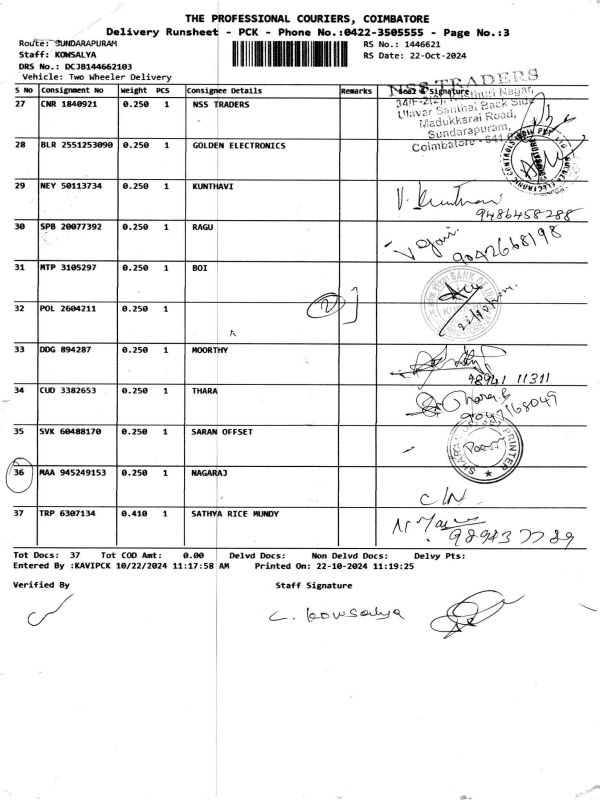 THE PROFESSIONAL COURIERS, COIMBATORE
Delivery Runsheet - PCK - Phone No.:0422-3505555 - Page No.:3
Route: SUNDARAPURAM RS No.: 1446621
Staff: KOWSALYA RS Date: 22-Oct-2024
DRS No.: DCJB144662103
Vehicle: Two Wheeler Delivery
S No Consignment No Weight PCS Consignee Details Remarks Seal & Signature
27 CNR 1840921 0.250 1 NSS TRADERS
NSS TRADERS
34/F-2(2), Nagar,
Ulavar Santhai Back Side
Madukkarai Road,
Sundarapuram,
Coimbatore - 641
28 BLR 2551253090 0.250 1 GOLDEN ELECTRONICS
29 NEY 50113734 0.250 1 KUNTHAVI
V. Kunthavi
9486458288
30 SPB 20077392 0.250 1 RAGU
9042668198
31 MTP 3105297 0.250 1 BOI
32 POL 2604211 0.250 1 2
33 DDG 894287 0.250 1 MOORTHY
98941 11311
34 CUD 3382653 0.250 1 THARA
Thara.
9047168049
35 SVK 60488170 0.250 1 SARAN OFFSET
PRINTER
36 MAA 945249153 0.250 1 NAGARAJ
C/N
37 TRP 6307134 0.410 1 SATHYA RICE MUNDY
Tot Docs: 37 Tot COD Amt: 0.00 Delvd Docs: Non Delvd Docs: Delvy Pts:
Entered By :KAVIPCK 10/22/2024 11:17:58 AM Printed On: 22-10-2024 11:19:25
Verified By Staff Signature
C. Kowsalya